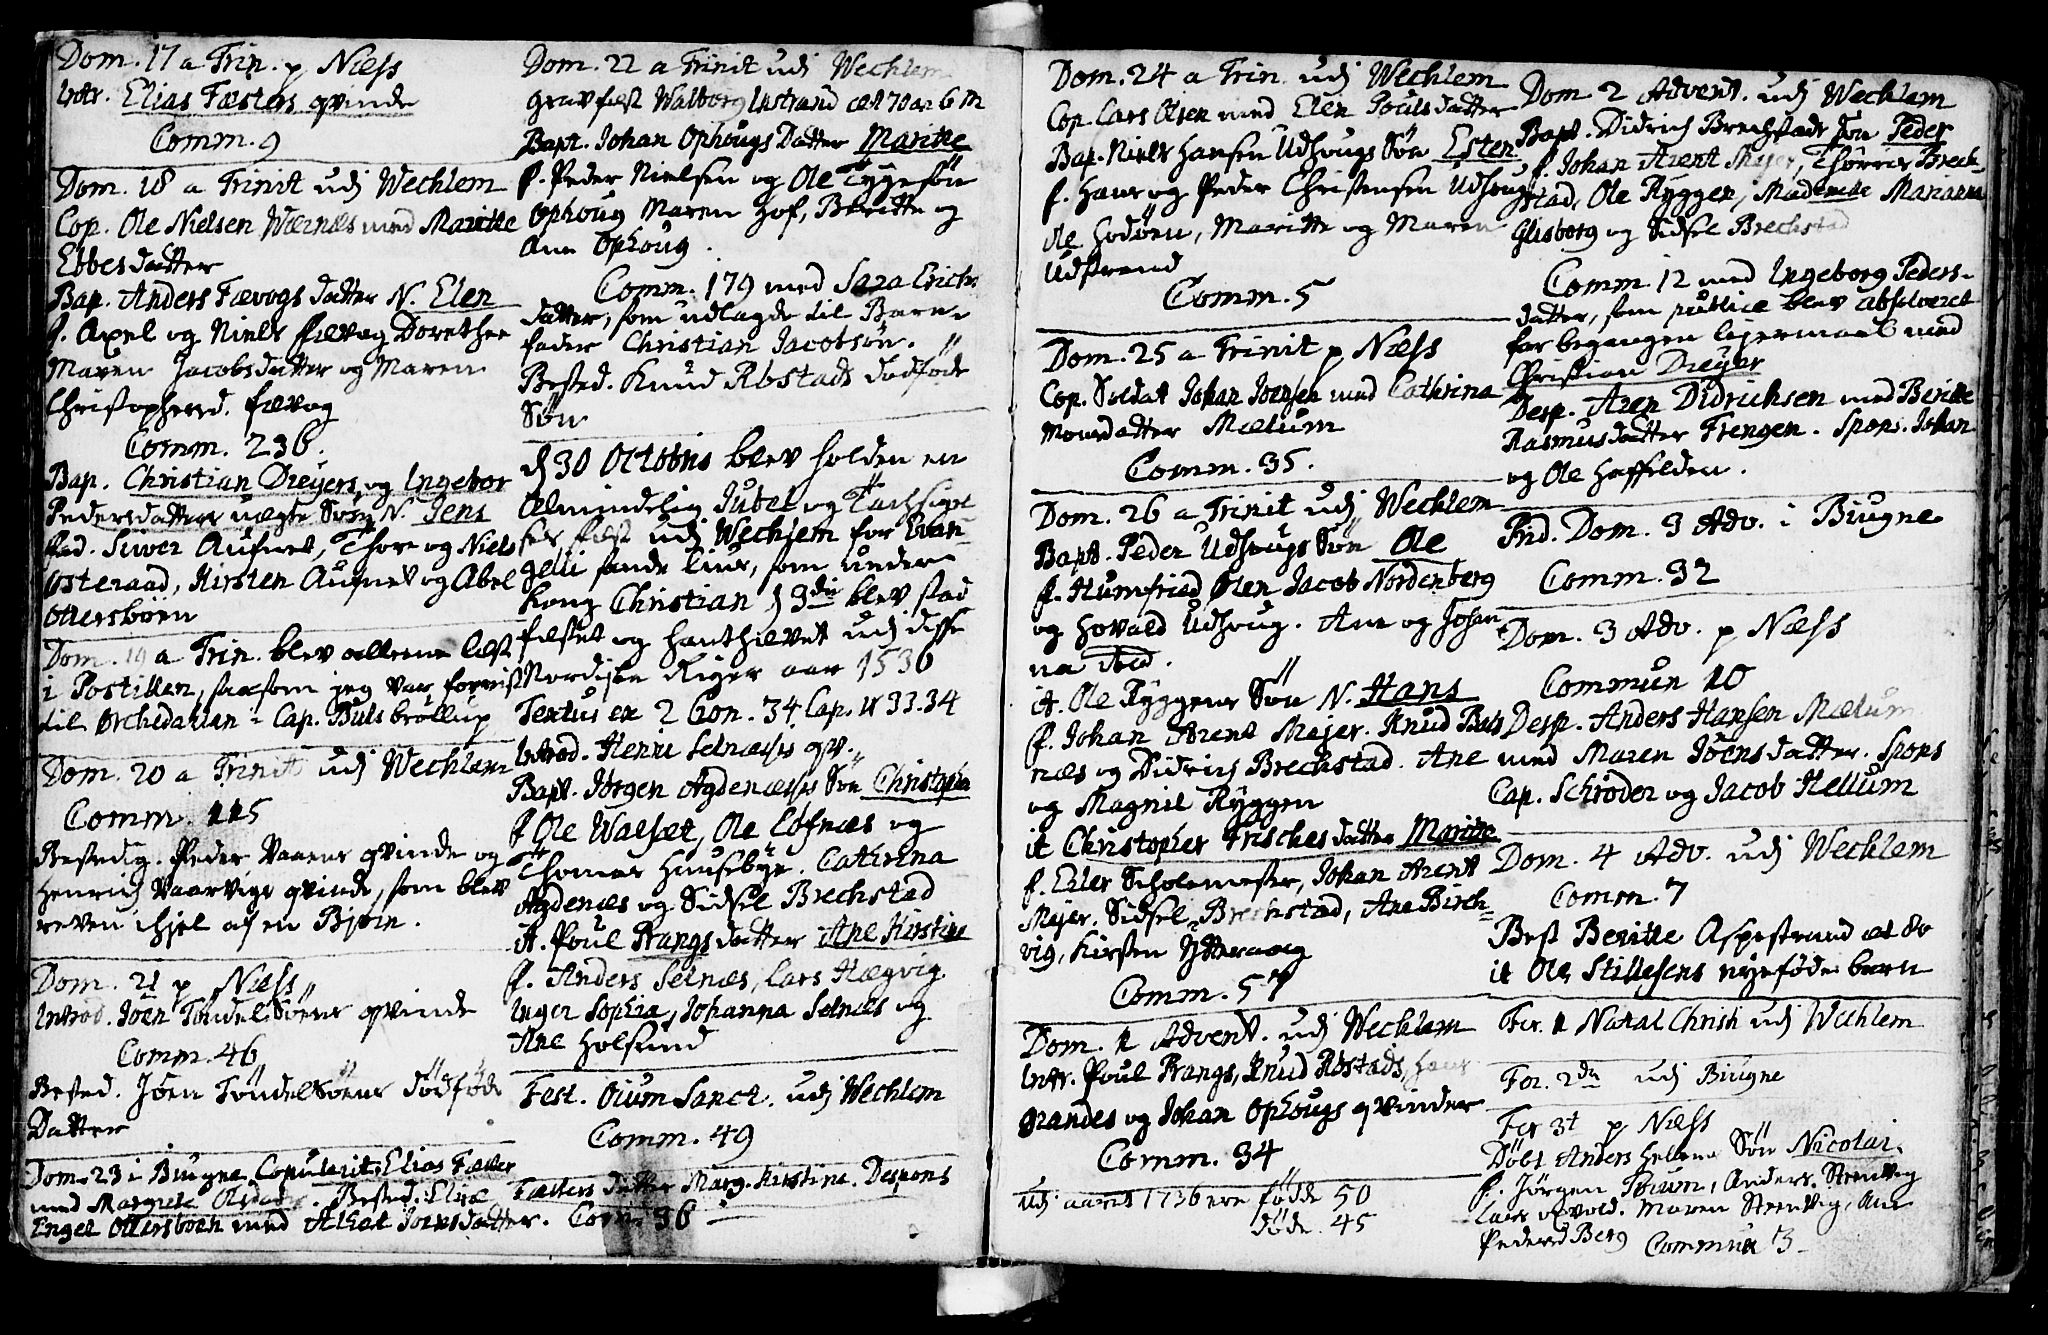 Dom. 17 a Trin. p Næss
Intr. Elias Fæsters qvinde
Comm. 9
Dom. 18 a Trinit udj Wechlem
Cop. Ole Nielsen Wærnæs med Maritte
Ebbesdatter
Bap. Anders Fævogs datter N. Elen
f. Axel og Niels Fævog Dorethe
Maren Jacobsdatter og Maren
Christophersd. Fævog
Comm. 236.
Bap. Christian Dreyers og Ingebor
Pedersdatters uægte Søn N. Jens
fad. Siver Aufnes, Thore og Niels
Østeraad, Kirsten Aufnes og Abel
Ottersboen
Dom. 19 a Trin. blev allene læst
i Postillen, saasom jeg var forreist
til Ørchedahlen i Cap. Buls brøllup
Dom. 20 a Trinit udj Wechlem
Comm. 115
Bestedig. Peder Vaaens qvinde og
Henrich Vaarvigs qvinde, som blev
reven ihjel af en Bjørn.
Dom. 21 p Næss
Introd. Joen Tøndelsøens qvinde
Comm. 46
Bested. Jøen Tøndelsøens dødføde
Datter
Dom. 23 i Biugne Copulerit. Elias Fæster
med Margrete . Bested.
Engel Ottersboen med Joensdatter.
Dom. 22 a Trinit udj Wechlem
gravfæst Walborg Ustrand æt 70 aar 6 M
Bapt. Johan Ophougs Datter Maritte
f. Peder Nielsen og Ole Tygesøn
Ophoug Maren Hof, Beritte og
Ane Ophoug.
Comm. 179 med Sara Erichs
datter, som udlagde til Barne
fader Christian Jacobsøn.
Bested. Knud Rbstads dødføde
Søn
d 30 Octobris blev holden en
Almindelig Jubel og Tachsigel
ses fæst udj Wechlem for Evan
gelii sande lius, som under
Kong Christian d 3die blev stad
fæstet og hanthævet udj disse
Nordiske Riger aar 1536
Textus ex 2 Cron. 34 Cap. v 33.34
Introd. Henri Selnæsis qv.
Bapt. Jørgen Agdenæssis Søn Christopher
f Ole Walsæt, Ole Løfnæs og
Thomas Huusebye. Cathrina
Agdenæs og Sidsel Brechstad
it. Poul Prangs datter Ane Kirstine
f. Anders Selnæs, Lars Hægvig
Inger Sophia, Johanna Selnæs og
Ane Holsund
Fest. Oium Sanct. udj Wechlem
Comm. 49
Fæsters datter Marg. Kirstine. Despons
Com. 36
Dom. 24 a Trin. udj Wechlem
Cop. Lars Olsen med Elen Poulsdatter
Bap. Niels Hansen Udhougs Søn Esten
f. Hans og Peder Christensen Udhoug
Ole Hodøen, Maritte og Maren
Udstrand
Comm. 5
Dom. 25 a Trinit p Næss
Cop. Soldat Johan Joensen med Cathrina
Monsdatter Mælum
Comm. 35.
Dom. 26 a Trinit udj Wechlem
Bapt. Peder Udhougs Søn Ole
f. Humfried Øien Jacob Nordenberg
og Hovald Udhoug. Ane og Johan
na ibid.
it. Ole Ryggens Søn N. Hans
f. Johan Arent Mejer. Knud
næs og Didrich Brechstad. Ane
og Magnil Ryggen
it Christopher Frisches datter Maritte
f. Eiler Scholemester, Johan Arent
Mejer. Sidsel Brechstad, Ane Birch-
vig, Kirsten Ytteraag
Comm. 57
Dom. 1 Advent. udj Wechlem
Intr. Poul Prangs, Knud Rbstads, Hans
Grandes og Johan Ophougs qvinder
Comm. 34
Udj aaret 1736 ere fødde 50
døde 45
Dom 2 Advent. udj Wechlem
Bapt. Didrich Brechstads Søn Peder
f. Johan Arent Mejer, Thørris Brech-
stad, Ole Ryggen, Mademlle Marianna
Glisborg og Sidsel Brechstad
Comm. 12 med Ingeborg Peders-
datter, som publice blev absolveret
for begangen lejermaal med
Christian Dreyer
Desp. Aren Didrichsen med Beritte
Rasmusdatter Frengen. Spons. Johan
og Ole Hoffelden.
Prid. Dom. 3 Adv. i Biugne
Comm. 32
Dom. 3 Adv. p Næss
Commun 10
Desp. Anders Hansen Mælum
med Maren Jøensdatter. Spons
Cap. Schrøder og Jacob Hellum
Dom. 4 Adv. udj Wechlem
Comm. 7
Best Beritte Aspestrand æt 80
it Ole Stillesens nyeføde barn
Fer. 1 Natal Christi udj Wechlem
Fer. 2da udj Biugne
Fer 3t p Næss
Døbt Anders Hellems Søn Nicolai.
f. Jørgen , Anders Steenvig
Lars . Maren Steenvig, Ane
Pedersd Berg Commun 3